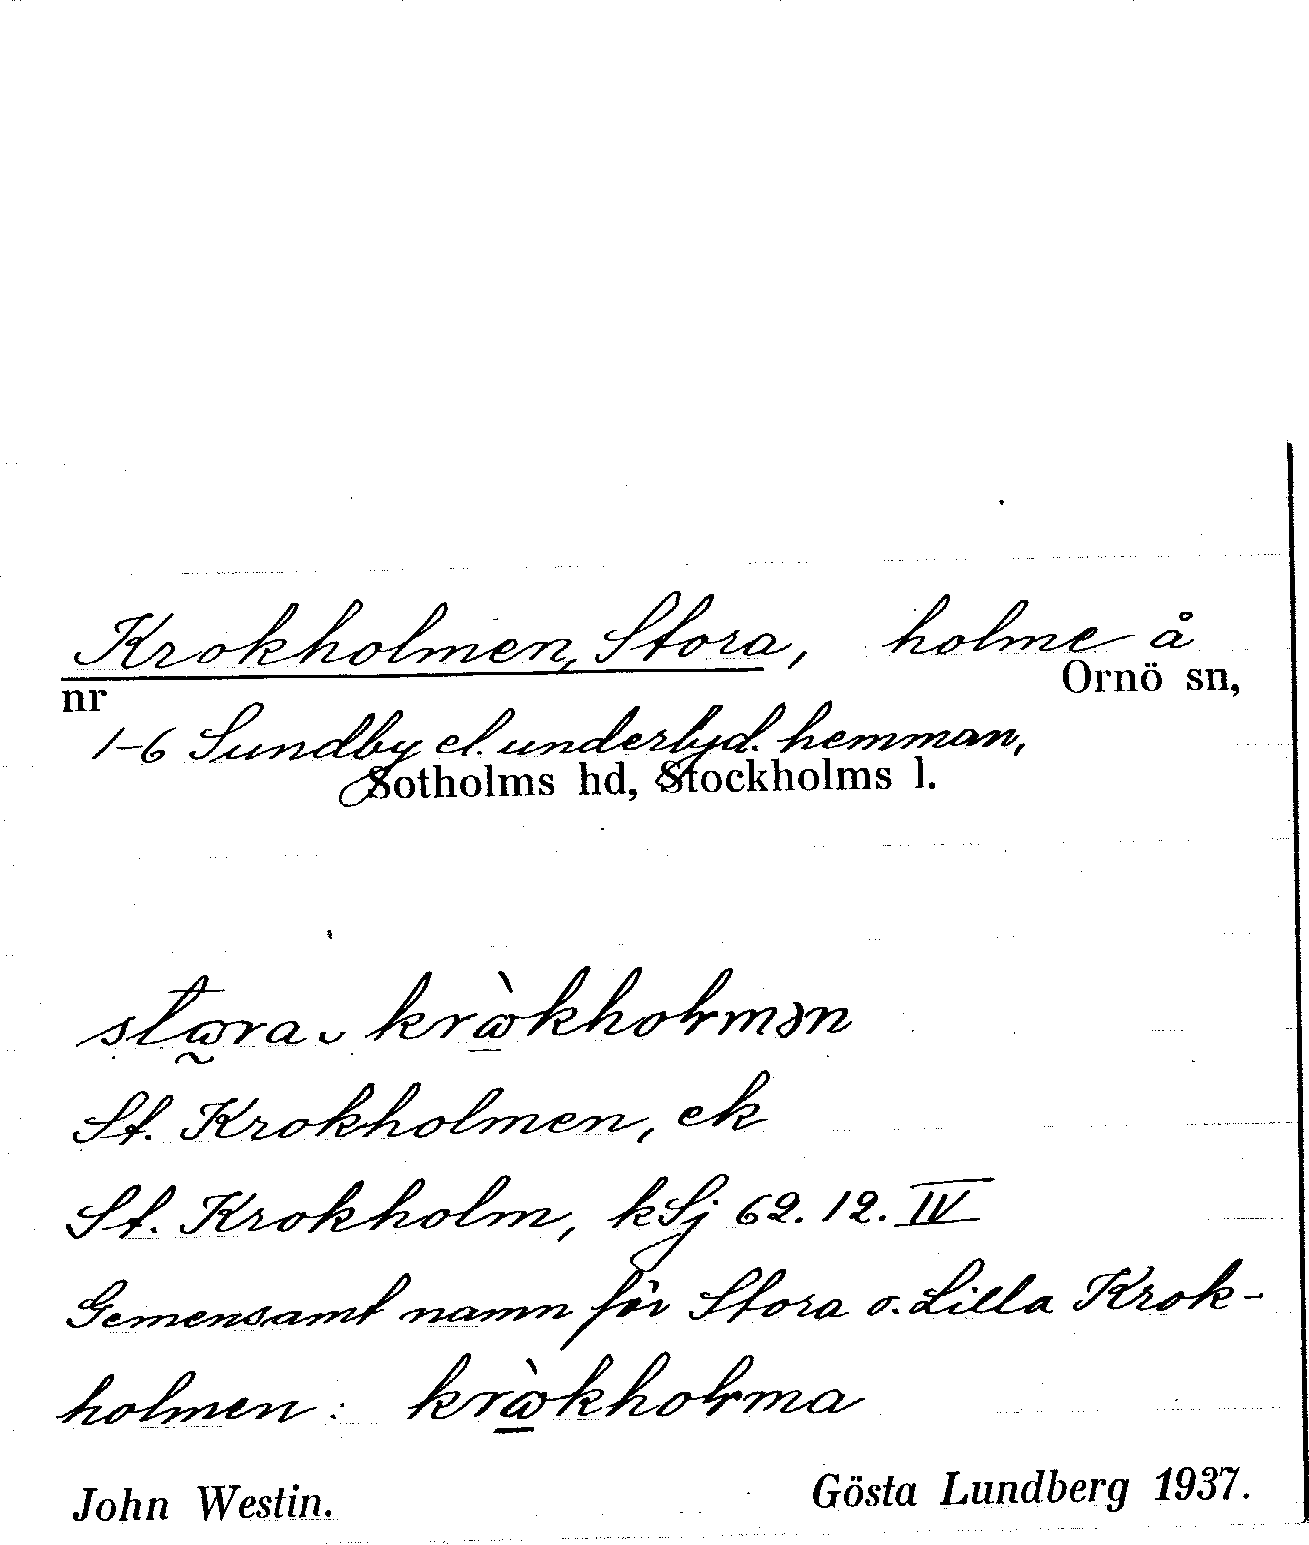 Krokholmen, Stora, holme å
nr Ornö sn,
1-6 Sundby el. underlyd. hemman,
Sotholms hd, Stockholms l.
krὼkholmən
St. Krokholmen, ek
St. Krokholm, kSj 62. 12. IV
Gemensamt namn för Stora o. Lilla Krok-
holmen: krὼkholma
John Westin. Gösta Lundberg 1937.